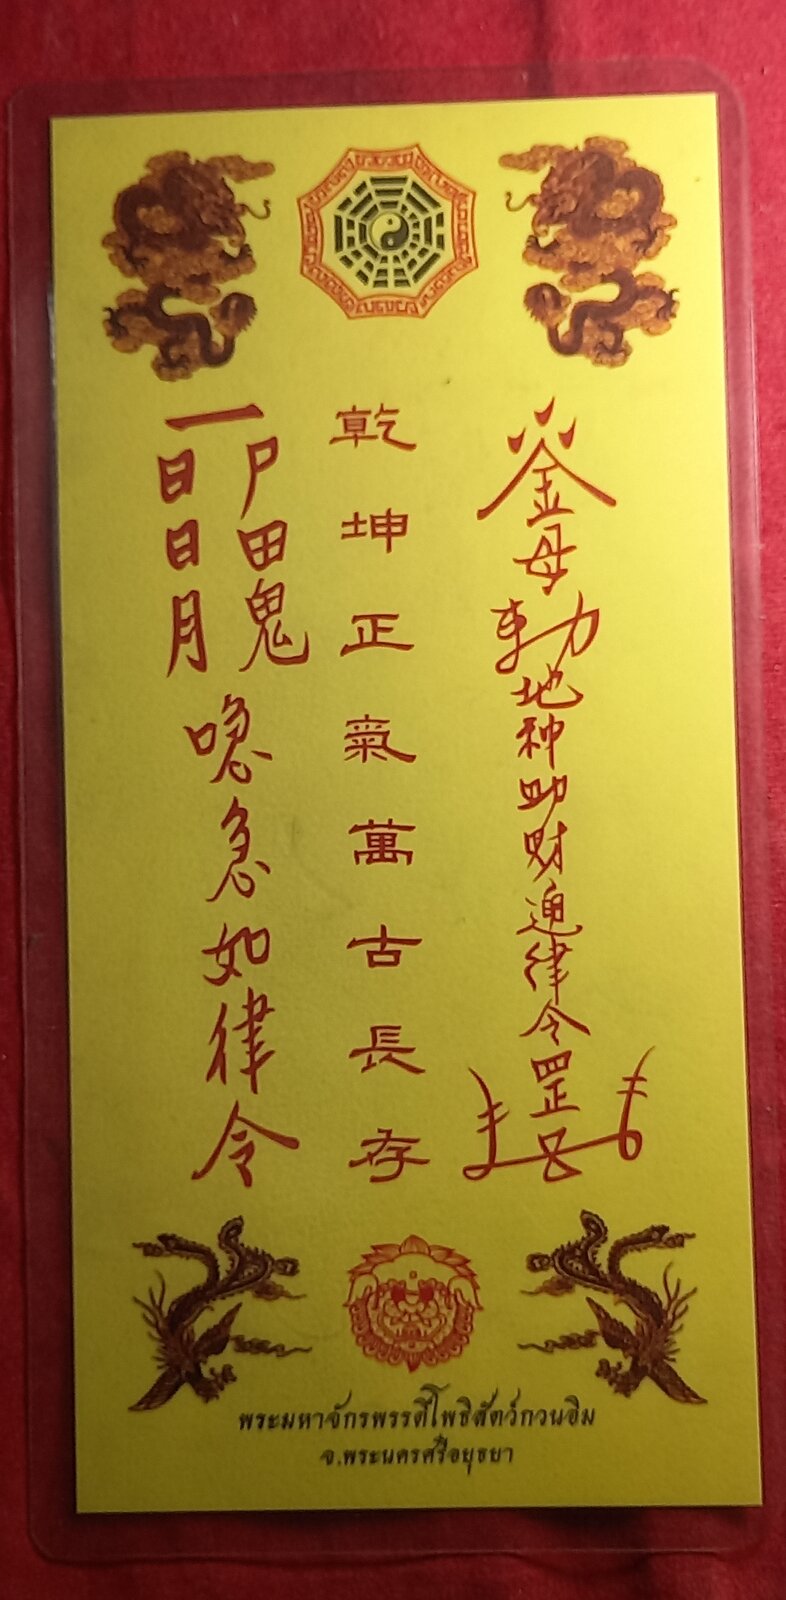 金母勅地神助財迎律令罡
乾坤正氣萬古長存
尸田鬼
一日日月
唸急如律令
พระมหาจักรพรรดิ์โพธิสัตว์กวนอิม
จ.พระนครศรีอยุธยา